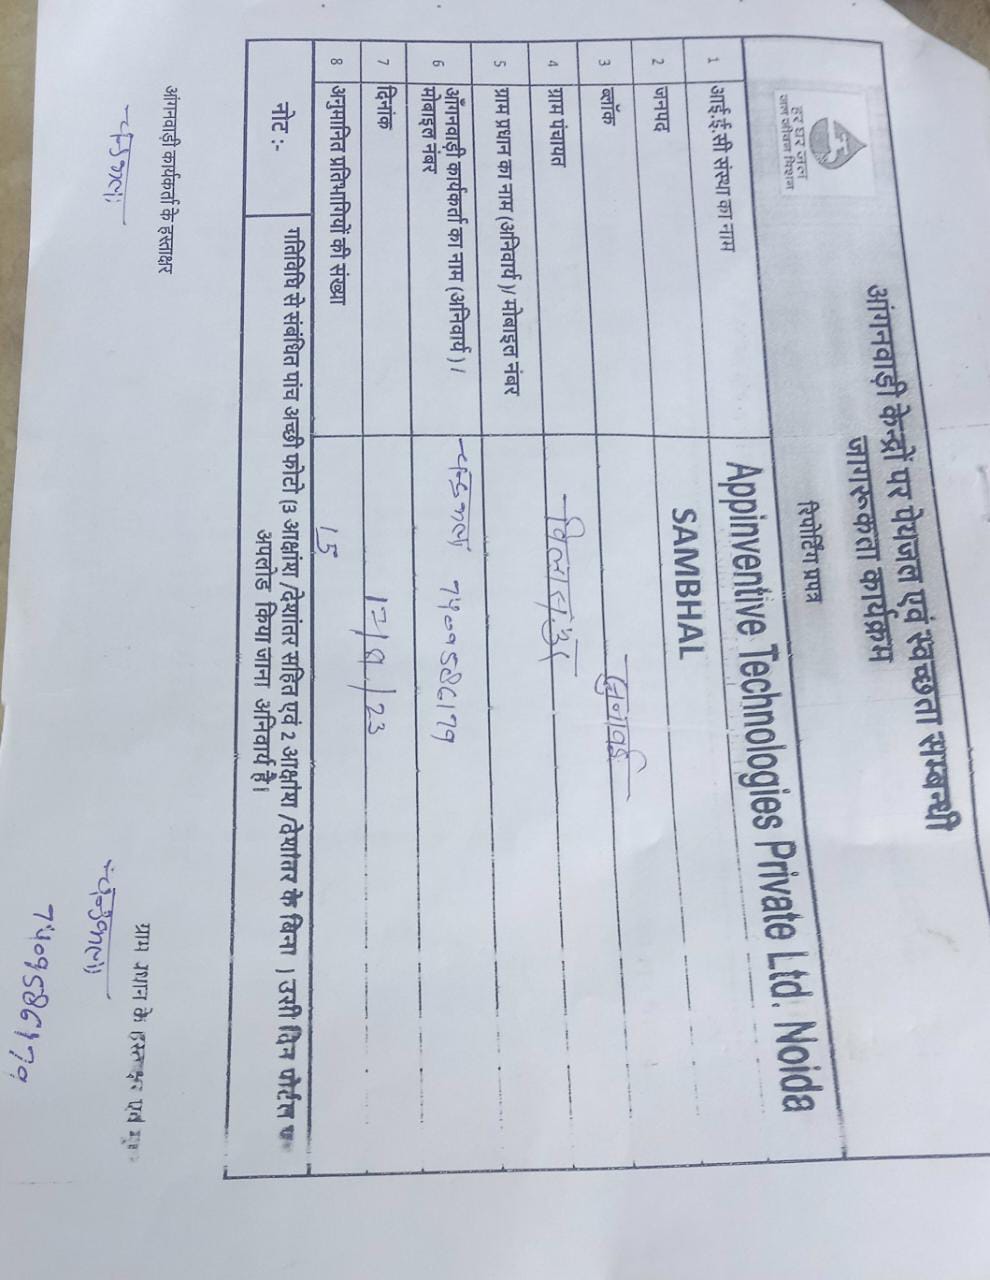 हर घर जल
जल जीवन मिशन
आंगनवाड़ी केन्द्रों पर पेयजल एवं स्वच्छता सम्बन्धी
जागरूकता कार्यक्रम
रिपोर्टिंग प्रपत्र
1 आई.ई.सी संस्था का नाम Appinventive Technologies Private Ltd. Noida
2 जनपद SAMBHAL
3 ब्लॉक जुनावई
4 ग्राम पंचायत
5 ग्राम प्रधान का नाम (अनिवार्य )/ मोबाइल नंबर
6 आँगनवाड़ी कार्यकर्ता का नाम (अनिवार्य ) /
मोबाइल नंबर चन्द्रकला
7 दिनांक
8 अनुमानित प्रतिभागियों की संख्या 15
नोट :- गतिविधि से संबंधित पांच अच्छी फोटो (3 आक्षांश /देशांतर सहित एवं 2 आक्षांश /देशांतर के बिना ) उसी दिन पोर्टल
अपलोड किया जाना अनिवार्य है।
आंगनवाड़ी कार्यकर्ता के हस्ताक्षर
चन्द्रकला
ग्राम प्रधान के हस्ताक्षर एवं
चन्द्रकला